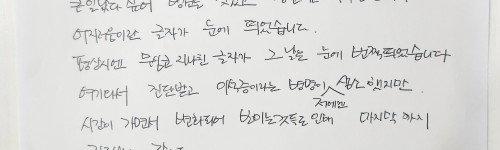 큰일났다 싶어
어지러움이란 글자가 눈에 띄었습니다.
평상시엔 무심코 지나친 글자가 그날는 눈에 번쩍 띄었습니다
여기와서 진단받고 이석증이라는 병명이 저에겐 생소했지만
시간이 가면서 변화되어 보이는것들로 인해 마지막까지